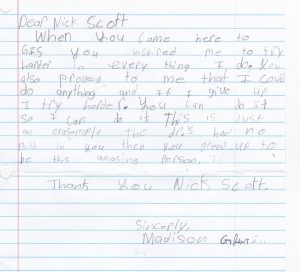 Dear Nick Scott
When you came here to
GIS you inspired me to try
harder in every thing I do. You
also proved to me that I coud
do anything and if I give up
I try harder. You can do it
so I can do it This is just
an exsomple the dr.s had no
faith in you then you grew up to
be this amazing person.
Thank you Nick Scott.
Sincerly,
Madison